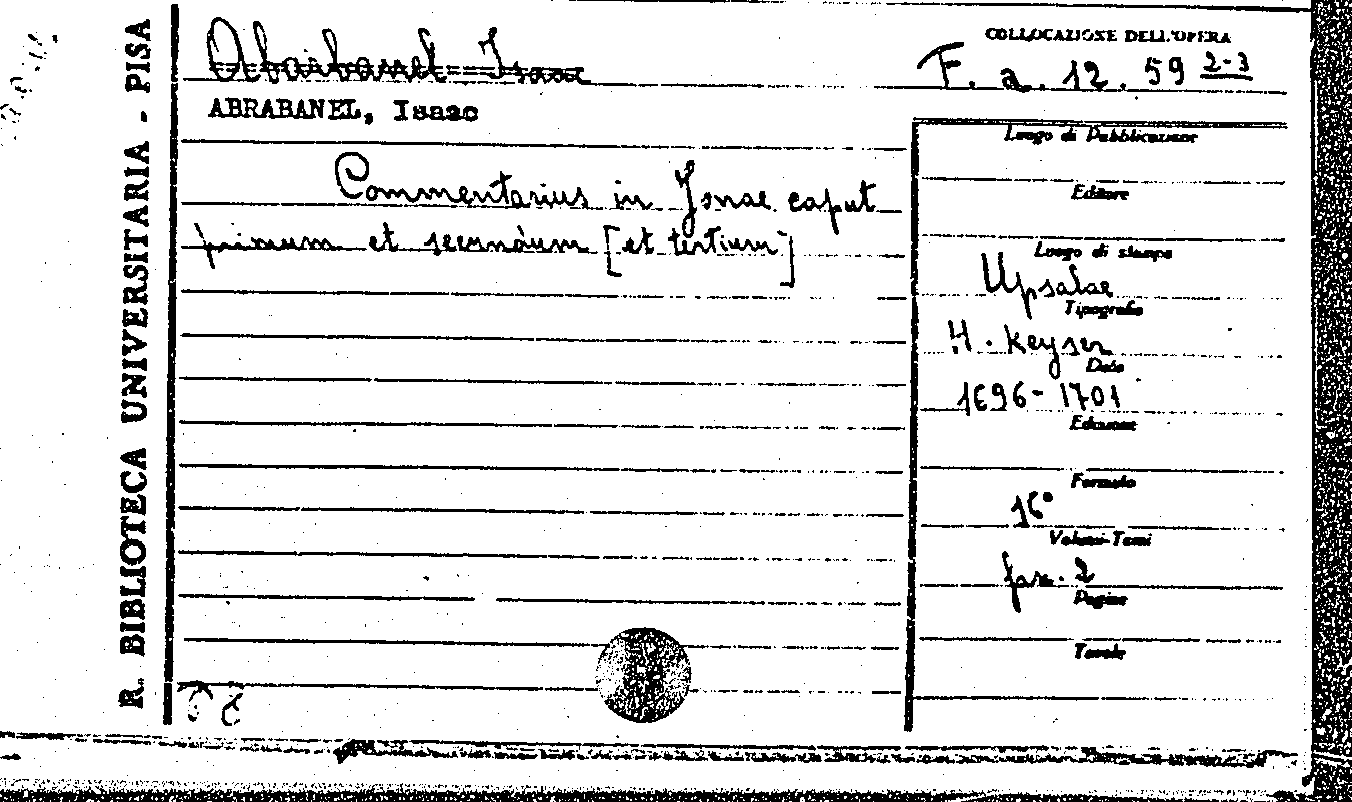 R. BIBLIOTECA UNIVERSITARIA - PISA
Abarbanel Isaac
ABRABANEL, Isaac
Commentarius in Jonae caput
primum et secundum [et tertium]
COLLOCAZIONE DELL'OPERA
F. a. 12. 59 2-3
Luogo di Pubblicazione
Editore
Luogo di stampa
Upsalae
Tipografo
H. Keyser
Data
1696-1701
Edizione
Formato
16°
Volumi-Tomi
fax. 2
Pagine
Tavole